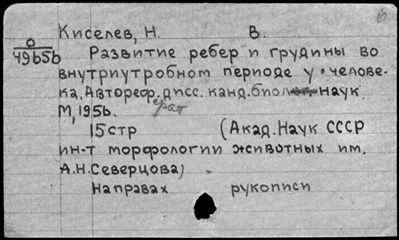 Киселев, Н. В.
О
4965ь
Развитие ребер и грудины во
внутриутробном периоде у челове-
ка, Автореф. дисс. канд. биол. наук
М, 195ь.
15 стр (Акад. Наук СССР
ин-т морфологии животных им.
А.Н. Северцова)
На правах рукописи